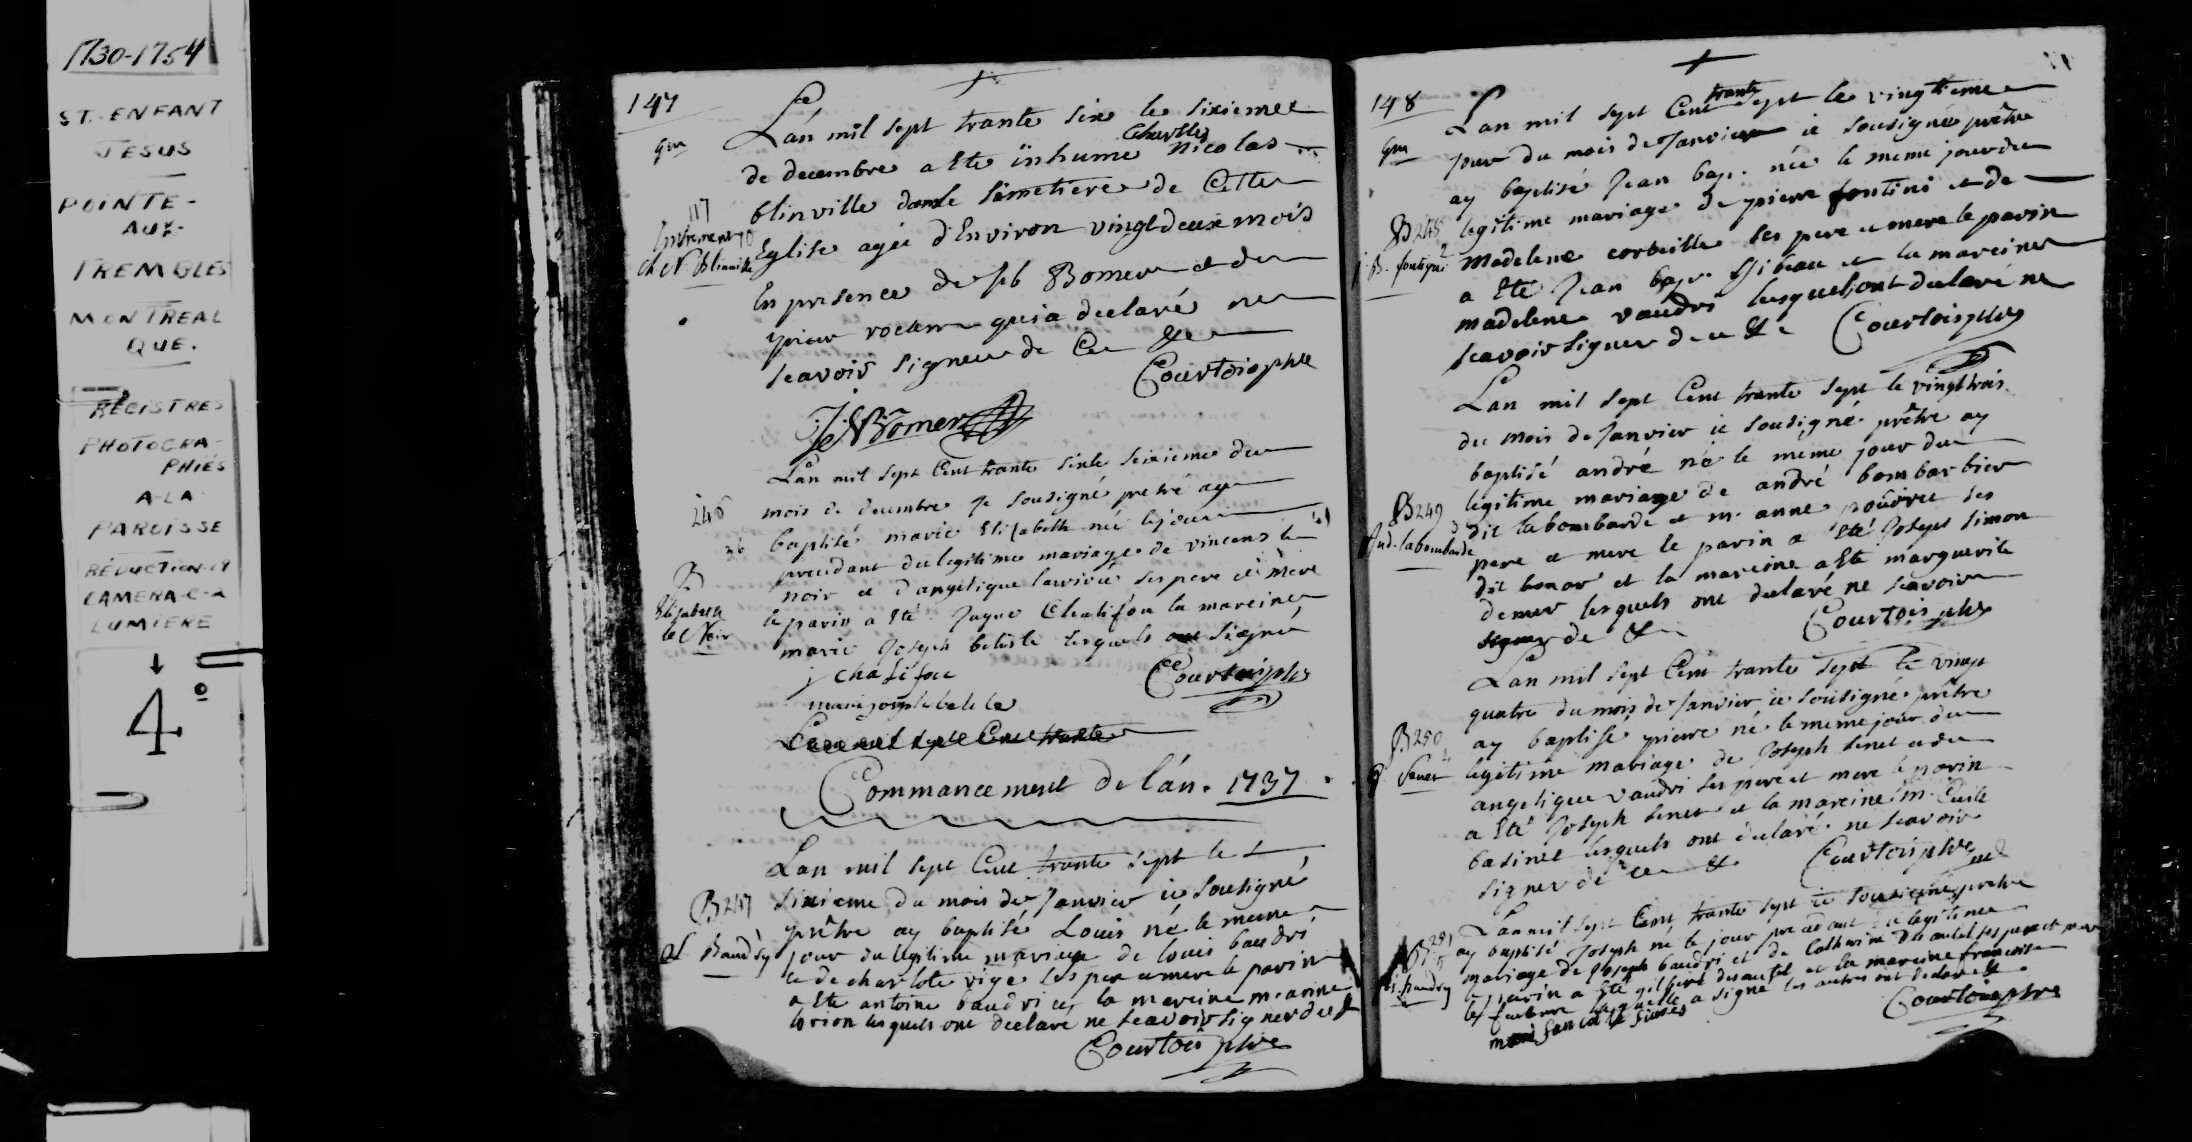 1730-1754
ST. ENFANT
JESUS
POINTE-
AUX-
TREMBLES
MONTREAL
QUE.
REGISTRES
PHOTOGRA-
PHIÉS
A-LA-
PAROISSE
RÉDUCTION-19
CAMERA-C-A
LUMIÈRE
4º
147
L'an mil sept trante six le sixieme
de decembre a ete inhumé Charles nicolas
blinville dans le simetiere de Cette
Eglise agée d'Environ vingt deux mois
En presence de Bomer et de
qui a declaré ne
scavoir signer de Ce &c
Courtois ptre
117
Ch N Blinville
Bomer
L'an mil sept Cent trante six le seixieme du
mois de decembre Je sousigné pretre ay
baptisé marie Elizabeth née le jour
precedant du legitime mariage de vincent le
noir et d'angelique larivié ses pere et mere
le parin a eté Jaque Chalifou la mareine
marie Joseph beleile lesquels ont signé
j chalifou
Courtois ptre
marie joseph belile
246
B
Elizabeth
le Noir
L'an mil sept Cent trante
Commancement de l'án. 1737.
L'an mil sept Cent trante sept le
sixieme du mois de Janvier ie sousigné
prêtre ay baptisé Louis né le meme
jour du legitime mariage de louis baudri
et de charlote vige ses pere et mere le parin
a ete antoine baudri et la mareine m. anne
lorion lesquels ont declaré ne scavoir signer de &
Courtois ptre
B247
L. Baudry
148
L'an mil sept Cent trante sept le vingtieme
jour du mois de Janvier ie sousigné prêtre
ay baptisé Jean bap. née le meme jour du
legitime mariage de pierre fontini et de
Madelene corbeille ses pere et mere le parin
a eté Jean bap. et la mareine
madelene vaudri lesquels ont declaré ne
scavoir signer de ce & Courtois ptre
B248
2
j. B. fontigni
L'an mil sept Cent trante sept le vingt trois
du mois de Janvier ie sousigné prêtre ay
baptisé andré né le meme jour du
legitime mariage de andré bombarbier
dit labombarde et m. anne ses
pere et mere le parin a eté Joseph simon
dit et la mareine a ete marguerite
demer lesquels ont declaré ne scavoir
signer de &
Courtois ptre
B249
3
And. labombarde
L'an mil sept Cent trante sept le vingt
quatre du mois de Janvier ie sousigné prêtre
ay baptisé pierre né le meme jour du
legitime mariage de Joseph senet et de
angelique vaudri ses pere et mere le parin
a eté Joseph senet et la mareine m.
basinet lesquels ont declaré ne scavoir
signer de ce & Courtois ptre
B250
4
P Senet
L'an mil sept Cent trante sept ie sousigné prêtre
ay baptisé Joseph né le jour precedant du legitime
mariage de Joseph baudri et de Catherine desautel ses pere et mere
le parin a eté gilbert desautel et la mareine francoise
laquelle a signé les autres ont declaré &
Courtois ptre
B251
5
Js. baudry